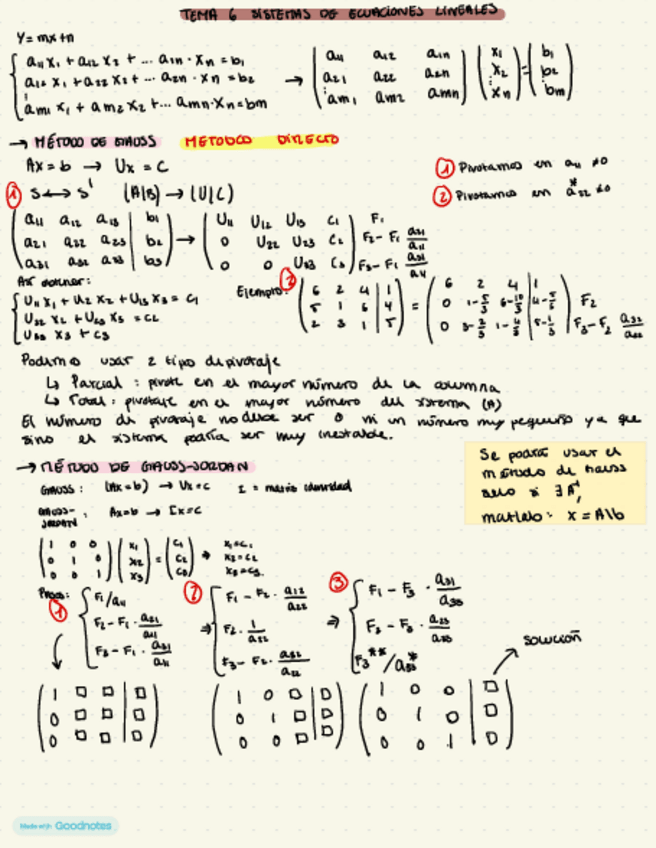 TEMA 6 SISTEMAS DE ECUACIONES LINEALES
Y = mx+n
a11 x1 + a12 x2 + ... a1n · xn = b1
a12 x1 + a22 x2 + ... a2n · xn = b2
am1 x1 + am2 x2 + ... amn·xn = bm
→ ( a11 a12 a1n ) ( x1 ) = ( b1 )
a21 a22 a2n x2 b2
am1 am2 amn xn bm
→ MÉTODO DE GAUSS METODO DIRECTO
Ax = b → Ux = C
① Pivotamos en a11 ≠0
② Pivotamos en a*22 ≠0
① S ↔ S' (A|B) → (U|C)
( a11 a12 a13 | b1 ) → ( U11 U12 U13 C1 ) F1
a21 a22 a23 | b2 0 U22 U23 C2 F2 - F1 a21/a11
a31 a32 a33 | b3 0 0 U33 C3 F3 - F1 a31/a11
obtener:
U11 x1 + U2 x2 + U13 x3 = C1
U22 x2 + U23 x3 = C2
U33 x3 + C3
Ejemplo: ②
( 6 2 4 | 1 ) = ( 6 2 4 | 1 )
5 1 6 | 4 0 F2
2 3 1 | 5 0 F3 - F2 a32/a22
Podemos usar 2 tipo de pivotaje
↳ Parcial : pivote en el mayor número de la columna
↳ Total : pivotaje en el mayor número del sistema (A)
El número de pivotaje no debe ser 0 ni un número muy pequeño ya que
sino el sistema podría ser muy inestable.
→ MÉTODO DE GAUSS-JORDAN
GAUSS: (Ax=b) → Ux=c I = matriz identidad
GAUSS-JORDAN: Ax=b → Ix=c
Se podrá usar el
método de Gauss
solo si ∃ A-1,
matlab: x = A\b
( 1 0 0 ) ( x1 ) = ( C1 ) → x1 = C1
0 1 0 x2 C2 x2 = C2
0 0 1 x3 C3 x3 = C3
Pasos:
① F1/a11
F2 - F1 · a21/a11
F3 - F1 · a31/a11
② ⇒ F1 - F2 · a12/a22
F2 · 1/a22
F3 - F2 · a32/a22
③ ⇒ F1 - F3 · a31/a33
F2 - F3 · a23/a33
F3** / a33*
SOLUCIÓN
( 1 □ □ | □ ) ( 1 0 □ | □ ) ( 1 0 0 | □ )
0 □ □ | □ 0 1 □ | □ 0 1 0 | □
0 □ □ | □ 0 0 □ | □ 0 0 1 | □
Made with Goodnotes